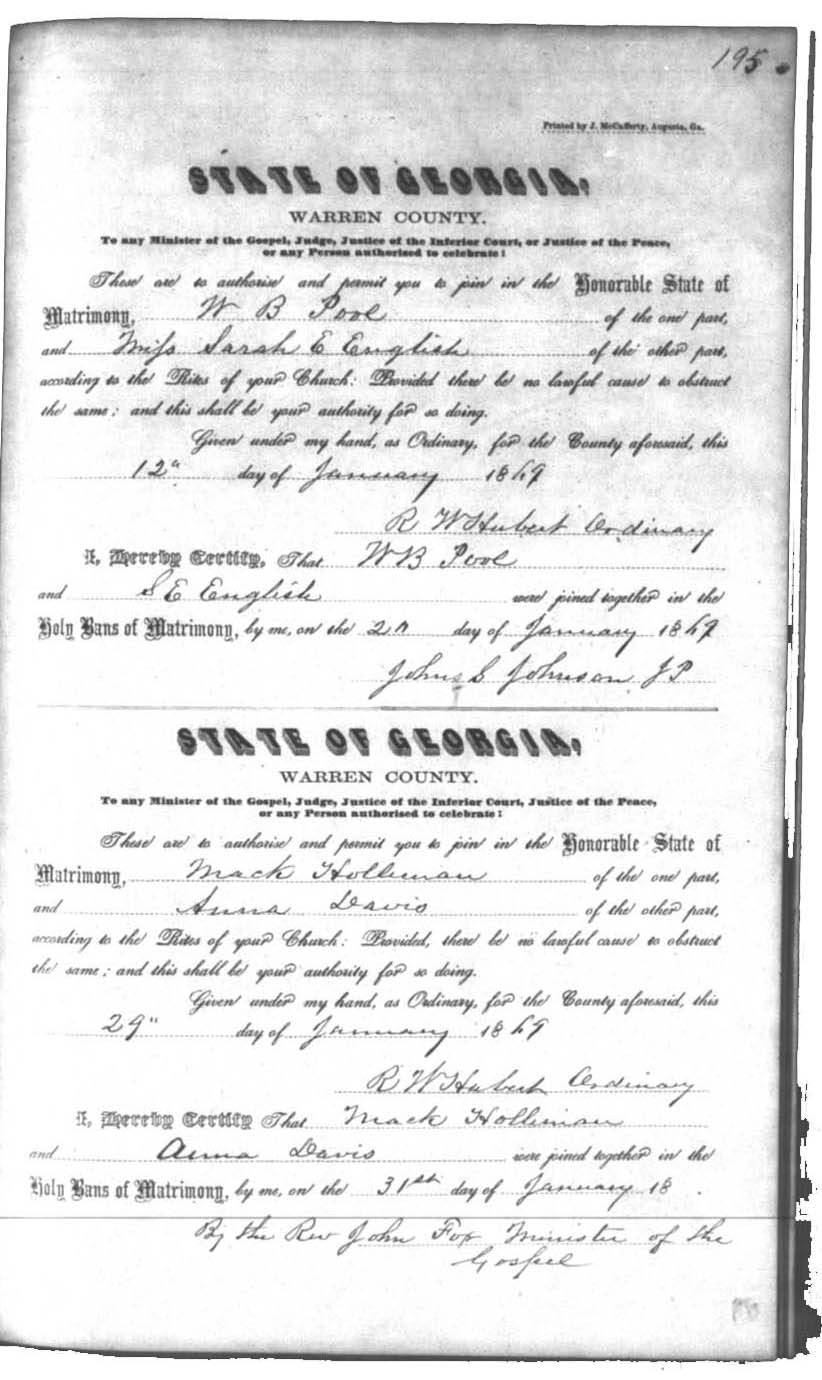 195
Printed by J. McCafferty, Augusta, Ga.
STATE OF GEORGIA,
WARREN COUNTY.
To any Minister of the Gospel, Judge, Justice of the Inferior Court, or Justice of the Peace,
or any Person authorised to celebrate:
These are to authorise and permit you to join in the Honorable State of
Matrimony, W B Pool of the one part,
and Miss Sarah E English of the other part,
according to the Rites of your Church: Provided there be no lawful cause to obstruct
the same; and this shall be your authority for so doing.
Given under my hand, as Ordinary, for the County aforesaid, this
12" day of January 1869
R W Hubert Ordinary
I, Hereby Certify, That W B Pool
and S E English were joined together in the
Holy Bans of Matrimony, by me, on the day of January 1869
John S Johnson J P
STATE OF GEORGIA,
WARREN COUNTY.
To any Minister of the Gospel, Judge, Justice of the Inferior Court, Justice of the Peace,
or any Person authorised to celebrate:
These are to authorise and permit you to join in the Honorable State of
Matrimony, Mack Holliman of the one part,
and Anna Davis of the other part,
according to the Rites of your Church: Provided, there be no lawful cause to obstruct
the same; and this shall be your authority for so doing.
Given under my hand, as Ordinary, for the County aforesaid, this
29" day of January 1869
R W Hubert Ordinary
I, Hereby Certify That Mack Holliman
and Anna Davis were joined together in the
Holy Bans of Matrimony, by me, on the 31st day of January 18 .
By the Rev John Fox Minister of the
Gospel